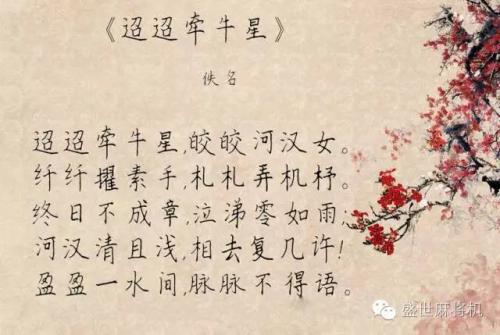 《迢迢牵牛星》
佚名
迢迢牵牛星,皎皎河汉女。
纤纤擢素手,札札弄机杼。
终日不成章,泣涕零如雨;
河汉清且浅,相去复几许!
盈盈一水间,脉脉不得语。
盛世麻将机